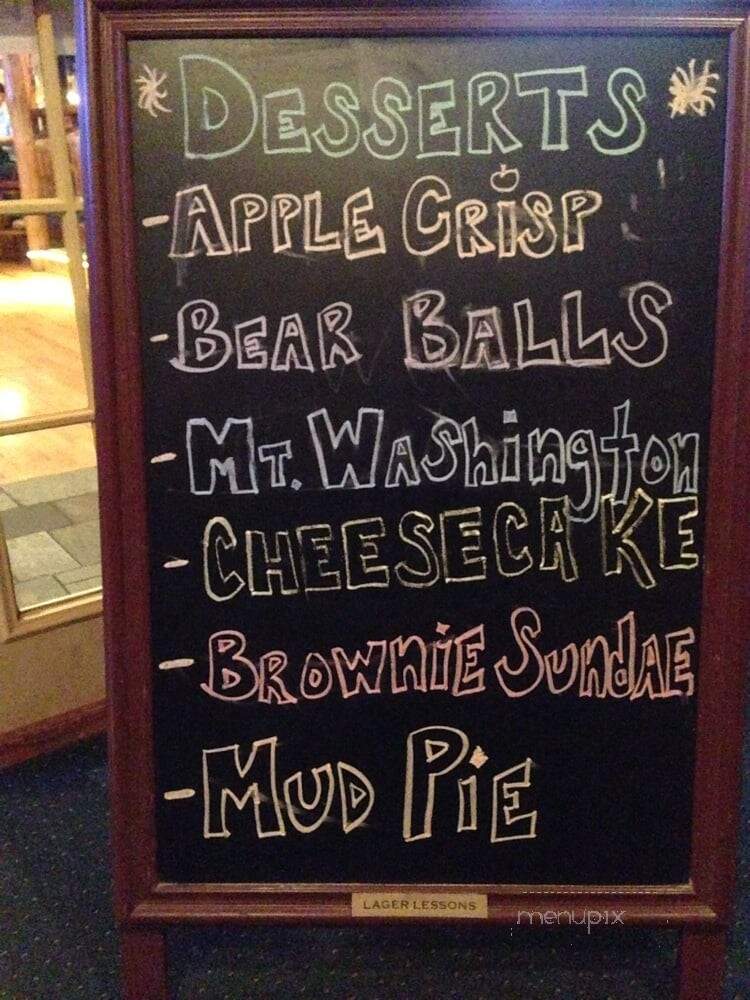 DESSERTS
- APPLE CRiSP
- BEAR BALLS
- MT. WAShington
- CHEESECAKE
- BROWniE SundAE
- MUD PiE
LAGER LESSONS
menupix